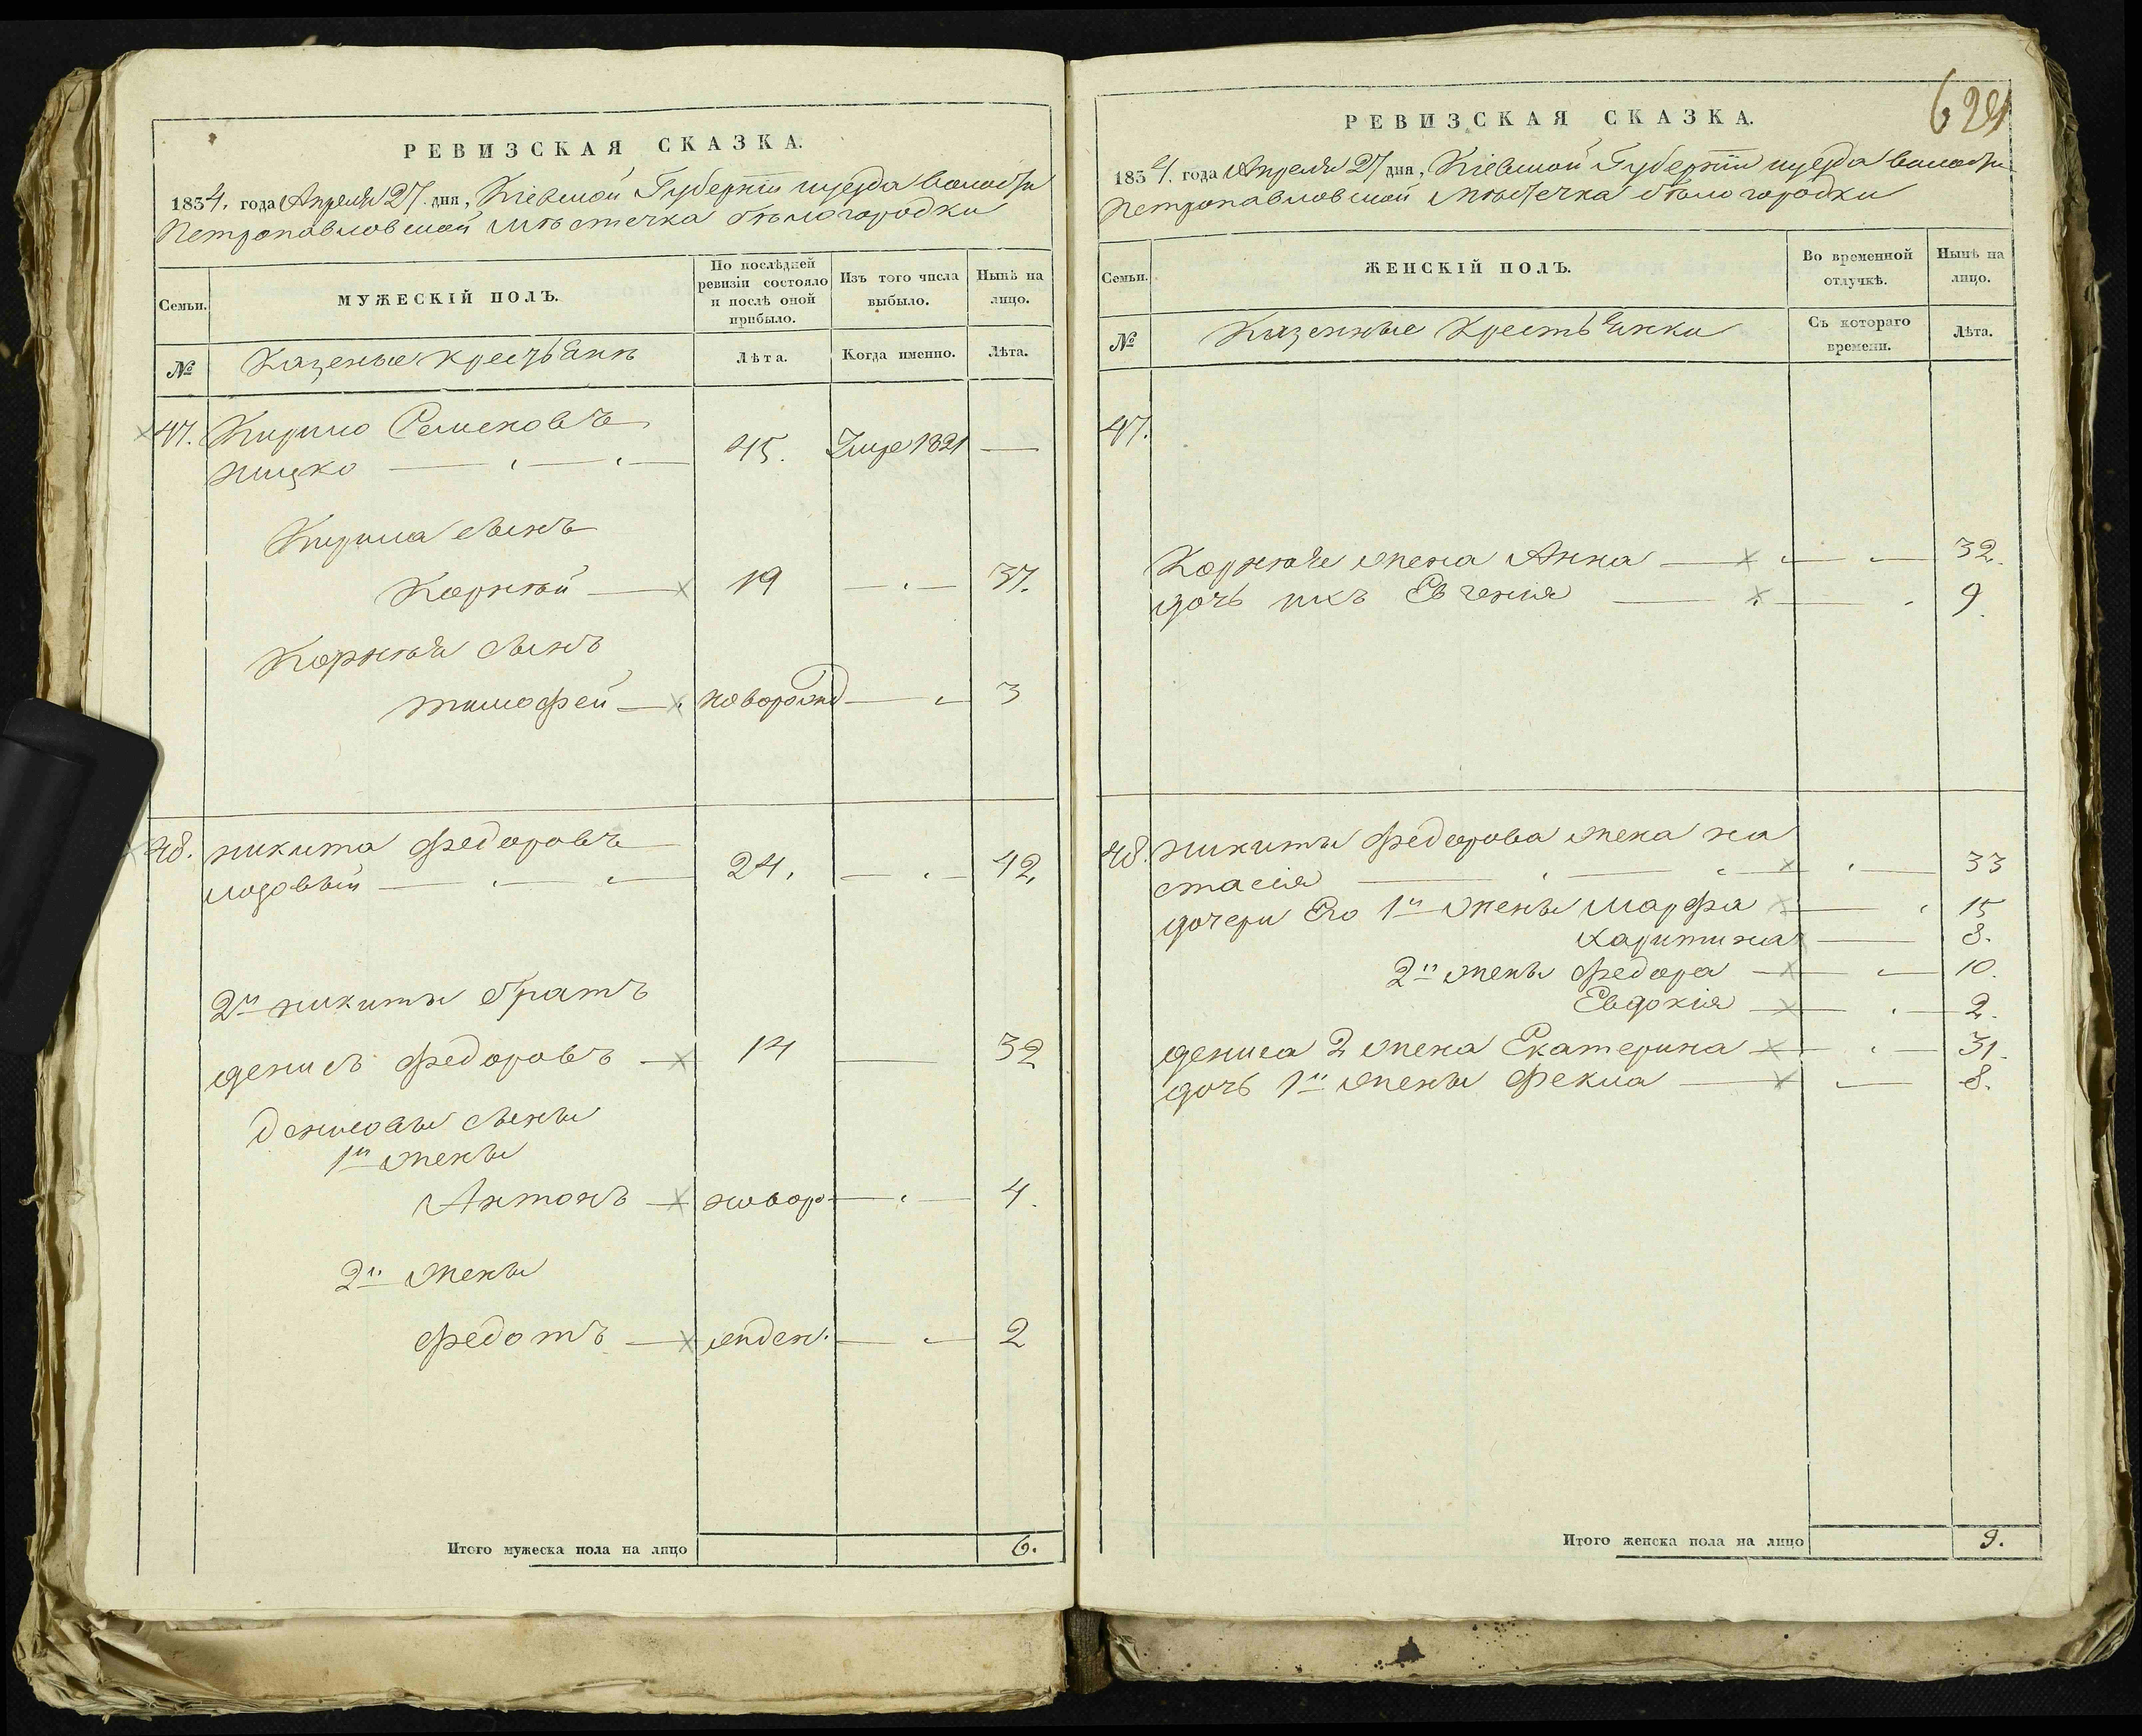 РЕВИЗСКАЯ СКАЗКА.
1834. года Апреля 27. дня, Кіевской Губерніи иуезда волости
Петропавловской мѣстечка бѣлогородки
Семьи.
МУЖЕСКІЙ ПОЛЪ.
По послѣдней
ревизіи состояло
и послѣ оной
прибыло.
Изъ того числа
выбыло.
Нынѣ на
лицо.
№
Казеные крестьяне
Лѣта.
Когда именно.
Лѣта.
47. Кирило Семеновъ
45. Умре 1821
Кирила сынъ
Корнѣй 19 37.
Корнѣя сынъ
тимофей поворожд 3
48. никита федоровъ
24. 42.
2й никиты братъ
денисъ федоровъ 14 32
денисовы сыны
1й жены
Антонъ новоро 4.
2й жены
федотъ 2
Итого мужеска пола на лицо 6.
621
РЕВИЗСКАЯ СКАЗКА.
1834. года Апреля 27 дня, Кіевской Губерніи иуезда волости
Петропавловской мѣстечка бѣлогородки
Семьи.
ЖЕНСКІЙ ПОЛЪ.
Во временной
отлучкѣ.
Нынѣ на
лицо.
№
Казенные крестьянки
Съ котораго
времени.
Лѣта.
47.
Корнѣя жена Анна 32.
дочь ихъ Евгенія 9.
48. никиты федорова жена на
стасія 33
дочери Его 1й жены марфа 15
харитина 8.
2й жены федора 10.
Евдокія 2.
дениса 2 жена Екатерина 31.
дочь 1й жены фекла 8.
Итого женска пола на лицо 9.